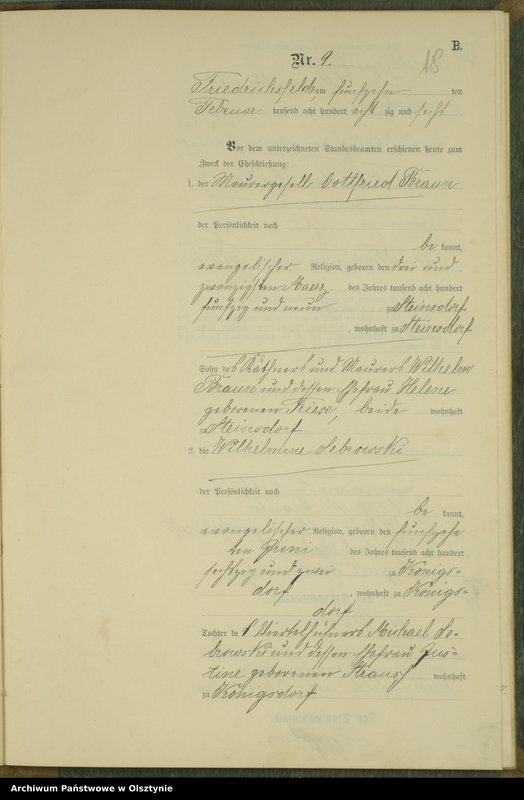 B.
Nr. 9.
18
Friedrichsfelde, am fünfzehn ten
Februar tausend acht hundert acht zig und sechs
Vor dem unterzeichneten Standesbeamten erschienen heute zum
Zweck der Eheschließung:
1. der Maurergesell Gottfried Braun
der Persönlichkeit nach
be kannt,
evangelischer Religion, geboren den drei und
zwanzigsten Maerz des Jahres tausend acht hundert
fünfzig und neun zu Steinsdorf
, wohnhaft zu Steinsdorf
Sohn des Käthners und Maurers Wilhelm
Braun und dessen Ehefrau Helene
geborenen Friese, beide wohnhaft
zu Steinsdorf
2. die Wilhelmine Sebrowski
der Persönlichkeit nach
be kannt,
evangelischer Religion, geboren den fünfzehn
ten Juni des Jahres tausend acht hundert
sechszig und zwei zu Königs=
dorf, wohnhaft zu Königs=
dorf
Tochter des Viertelhüfners Michael Se-
browski und dessen Ehefrau Jus=
tine geborenen Strauss wohnhaft
zu Königsdorf
Archiwum Państwowe w Olsztynie